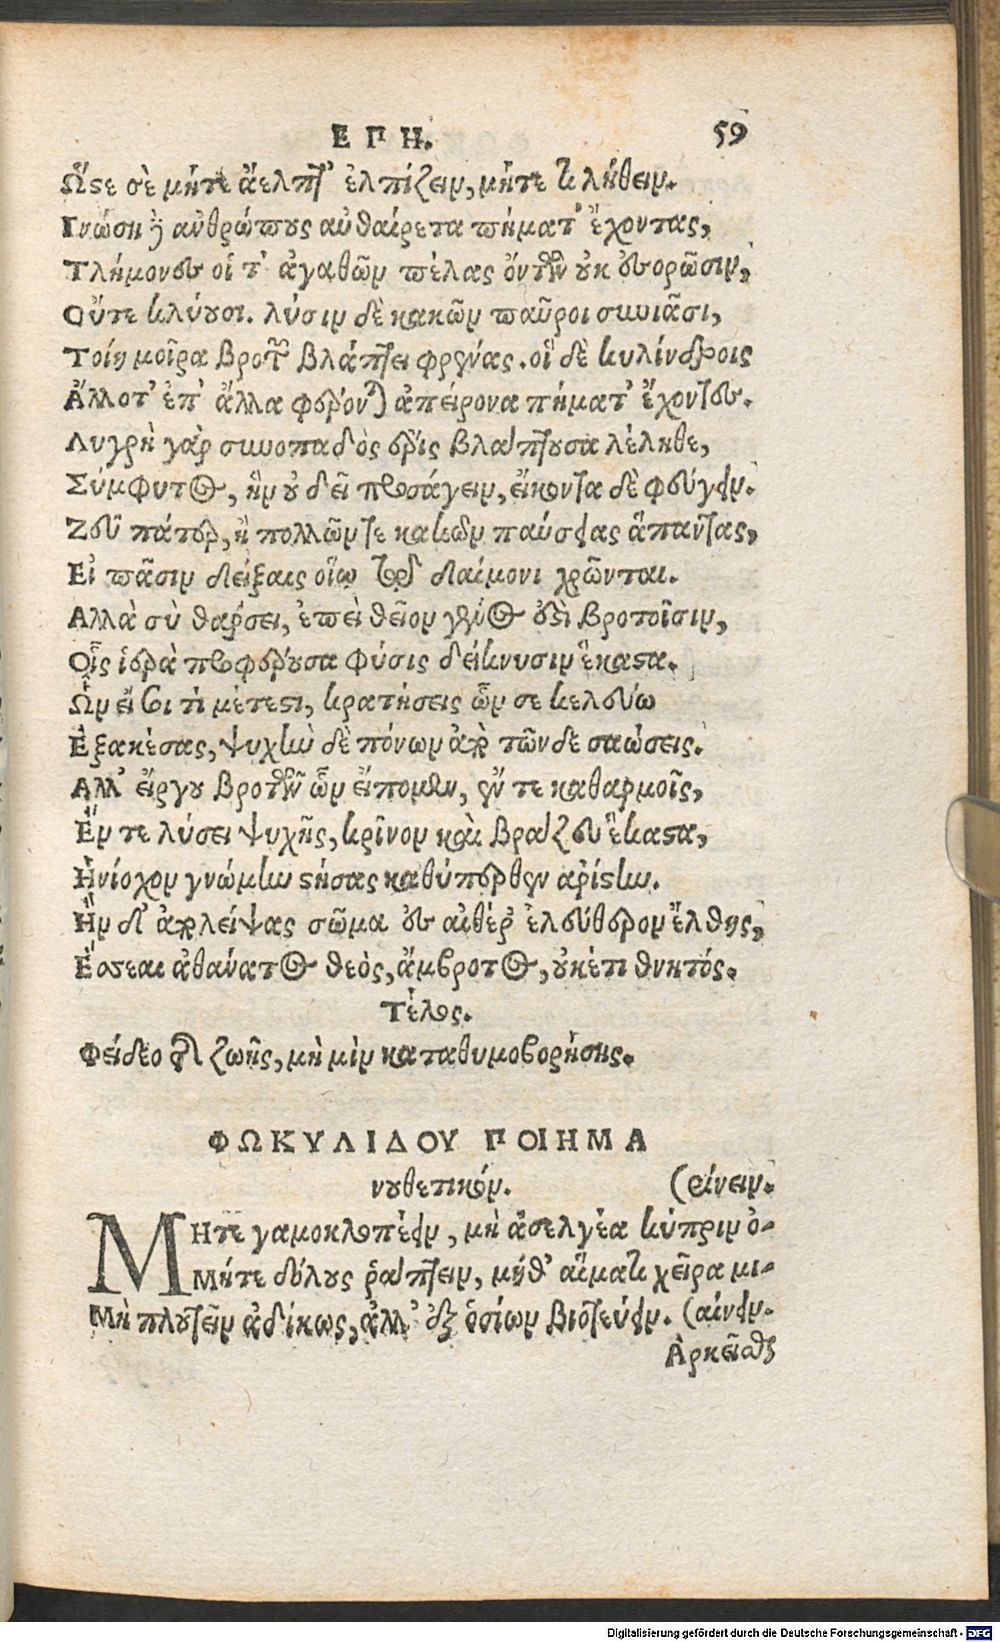 ΕΠΗ. 59
Ὥστε σὲ μήτε ἄελπτ' ἐλπίζειν, μήτε τι λήθειν.
Γνώση δ' ἀνθρώπους αὐθαίρετα πήματ' ἔχοντας,
Τλήμονες οἵ τ' ἀγαθῶν πέλας ὄντων οὐκ ἐσορῶσιν,
Οὔτε κλύουσι. λύσιν δὲ κακῶν παῦροι συνιᾶσι,
Τοίη μοῖρα βροτῶν βλάπτει φρένας. οἱ δὲ κυλίνδροις
Ἄλλοτ' ἐπ' ἄλλα φέρονται ἀπείρονα πήματ' ἔχοντες.
Λυγρὴ γὰρ συνοπαδὸς ἔρις βλάπτουσα λέληθε,
Σύμφυτος, ἣν οὐ δεῖ προσάγειν, εἴκοντα δὲ φεύγειν.
Ζεῦ πάτερ, ἢ πολλῶν τε κακῶν παύσειας ἅπαντας,
Εἰ πᾶσιν δείξαις οἵῳ τῷ δαίμονι χρῶνται.
Αλλὰ σὺ θάρσει, ἐπεὶ θεῖον γένος ἐστὶ βροτοῖσιν,
Οἷς ἱερὰ προφέρουσα φύσις δείκνυσιν ἕκαστα.
Ὧν εἴ σοι τὶ μέτεστι, κρατήσεις ὧν σε κελεύω
Ἐξακέσας, ψυχὴν δὲ πόνων ἀπὸ τῶνδε σαώσεις.
Αλλ' εἴργου βροτῶν ὧν εἴπομεν, ἔν τε καθαρμοῖς,
Ἔν τε λύσει ψυχῆς, κρῖνον καὶ φράζευ ἕκαστα,
Ἡνίοχον γνώμην στήσας καθύπερθεν ἀρίστην.
Ἢν δ' ἀπολείψας σῶμα ἐς αἰθέρ' ἐλεύθερον ἔλθῃς,
Ἔσσεαι ἀθάνατος θεὸς, ἄμβροτος, οὐκέτι θνητός.
Τέλος.
Φείδεο τῆς ζωῆς, μὴ μὶν καταθυμοβορήσης.
ΦΩΚΥΛΙΔΟΥ ΠΟΙΗΜΑ
νουθετικόν. (ρίνειν.
ΜΗτε γαμοκλοπέειν, μὴ ἄσελγέα κύπριν ὀ-
Μήτε δόλους ῥάπτειν, μήθ' αἵματι χεῖρα μι-
Μὴ πλουτεῖν ἀδίκως, ἀλλ' ἐξ ὁσίων βιοτεύειν. (αίνειν.
Ἀρκεῖσθαι
Digitalisierung gefördert durch die Deutsche Forschungsgemeinschaft - DFG